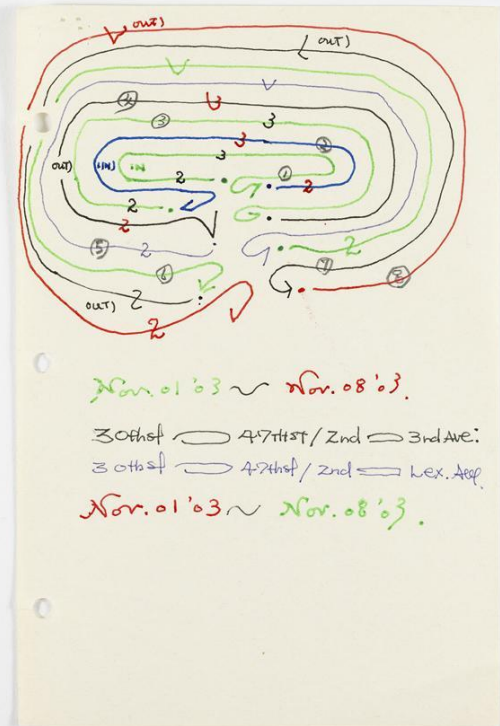 OUT)
OUT)
4
3
3
3
2
OUT)
(IN)
IN
3
1
2
2
2
2
5
2
2
6
7
8
OUT)
2
2
Nov. 01 '03 ~ Nov. 08 '03.
30thst ⊂⊃ 47THST / 2nd ⊂⊃ 3rd Ave:
30thst ⊂⊃ 47thst / 2nd ⊂⊃ Lex. Ave.
Nov. 01 '03 ~ Nov. 08 '03.